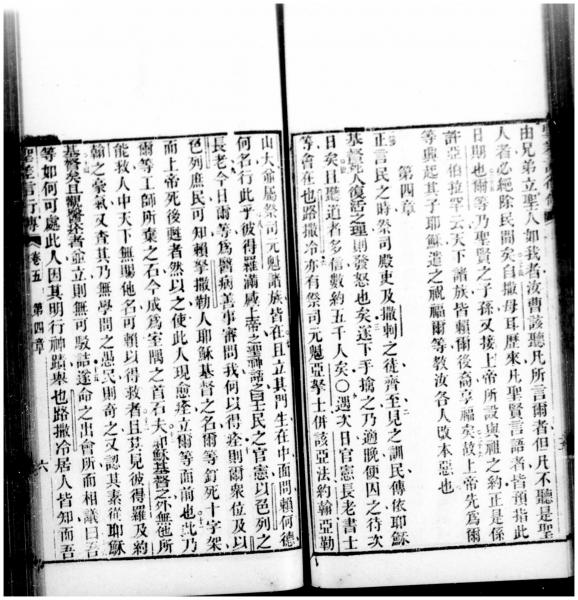 由兄弟立聖人如我者汝曹該聽凡所言爾者但凡不聽是聖
人者必絕除民間矣自撒母耳歷來凡聖賢言語者皆預指此
日期也爾等乃聖賢之子孫又接上帝所設與祖之約正是係
許亞伯拉罕云天下諸族皆賴爾後裔享福矣故上帝先爲爾
等興起其子耶穌遣之祝福爾等敎汝各人改本惡也
第四章
正言民之時祭司殿吏及撒剌之徒齊至見之訓民傳依耶穌
基督死人復活之理則發怒也矣遂下手擒之乃適晚便囚之待次
日矣且聽道者多信數約五千人矣○遇次日官憲長老書士
等會在也路撒冷亦有祭司元魁亞拏士併該亞法約翰亞勒
山大爺屬祭司元魁諸族皆在且立其門生在中面問賴何德
何名行此乎彼得羅滿感上帝之聖神謂之曰王民之官憲以色列之
長老今日爾等爲醫病善事審問我何以得痊則爾衆位及以
色列庶民可知賴拏撒勒人耶穌基督之名爾等釘死十字架
而上帝死後甦者然以之使此人現愈痊立爾等面前也此乃
爾等工師所棄之石今成爲室隅之首石夫耶穌基督之外無他所
能救人中天下無賜他名可賴以得救者且其見彼得羅及約
翰之豪氣又查其乃無學問之愚又則奇之又認其素從耶穌
基督矣且觀醫痊者並立則無可駁詰遂命之出會所而相議曰吾
等如何可處此人因其明行神蹟與也路撒冷居人皆知而吾
聖差言行傳
卷五
第四章
六